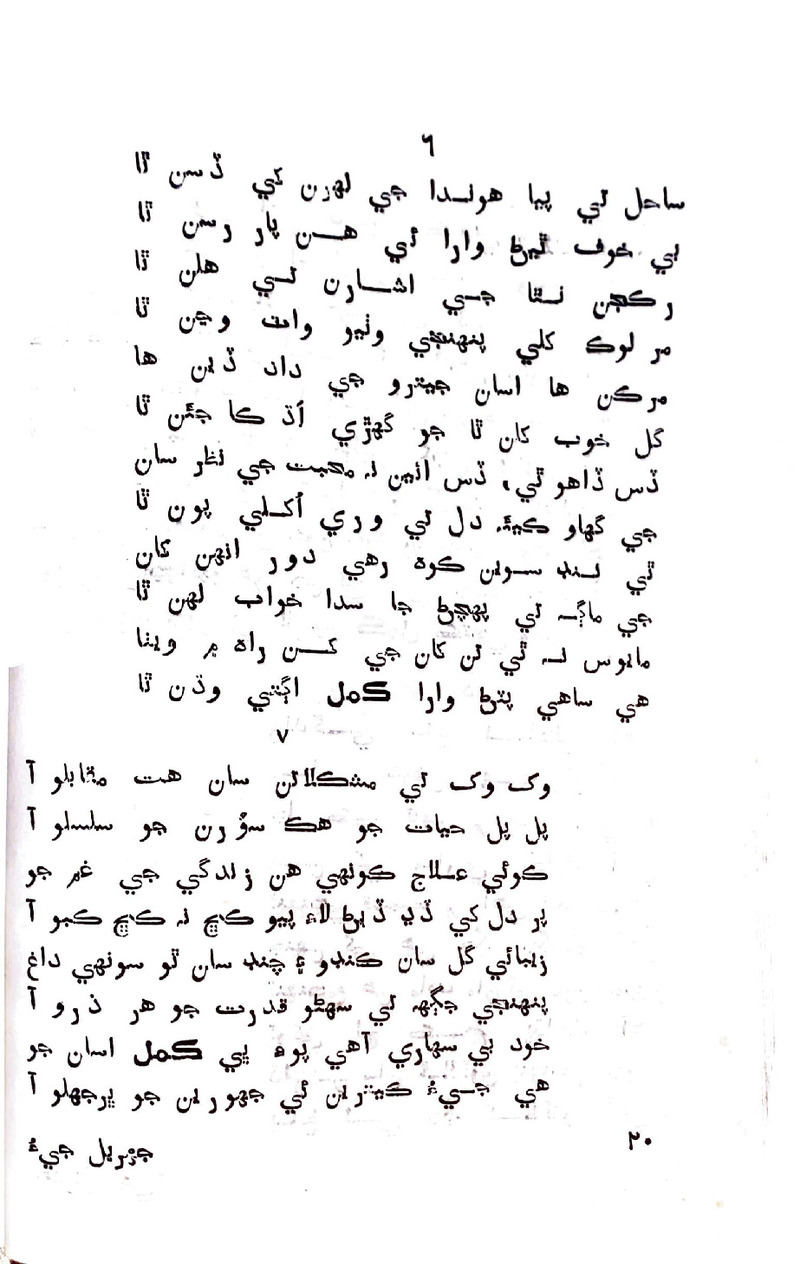 ٦
ساحل تي پيا هوندا جي لهرن کي ڏسن ٿا
بي خوف ٿيڻ وارا ئي هن پار رسن ٿا
رڪجن نٿا جي اشارن تي هلن ٿا
مر لوڪ کلي پنهنجي وٺيو واٽ وڃن ٿا
مرڪن ها اسان جيترو جي داد ڏين ها
گل خوب کان ٿا جو گهڙي اڌ ڪا جئن ٿا
ڏس ڏاهو ٿي، ڏس ائين نه محبت جي نظر سان
جي گهاو ڪيئه دل تي وري اُڪلي پون ٿا
ٿي ننڊ سوين ڪوه رهي دور انهن کان
جي ماڳ تي پهچڻ جا سدا خواب لهن ٿا
مايوس نه ٿي تن کان جي کن راه ۾ ويٺا
هي ساهي پٽڻ وارا ڪمل اڳتي وڌن ٿا
٧
وک وک تي مشڪلاتن سان هت مقابلو آ
پل پل حيات جو هڪ سؤرن جو سلسلو آ
ڪوئي علاج ڪونهي هن زندگي جي غم جو
پر دل کي ڏڍ ڏيڻ لاءِ پيو ڪڇ نه ڪڇ ڪبو آ
زيبائي گل سان ڪنڊو ۽ چنڊ سان ٿو سونهي داغ
پنهنجي جڳهه تي سهڻو قدرت جو هر ذرو آ
خود بي سهاري آهي پوه ڀي ڪمل اسان جو
هي جيءُ ڪيترين ئي جهورين جو ڀرجهلو آ
٢٠
جزيريل جيءُ